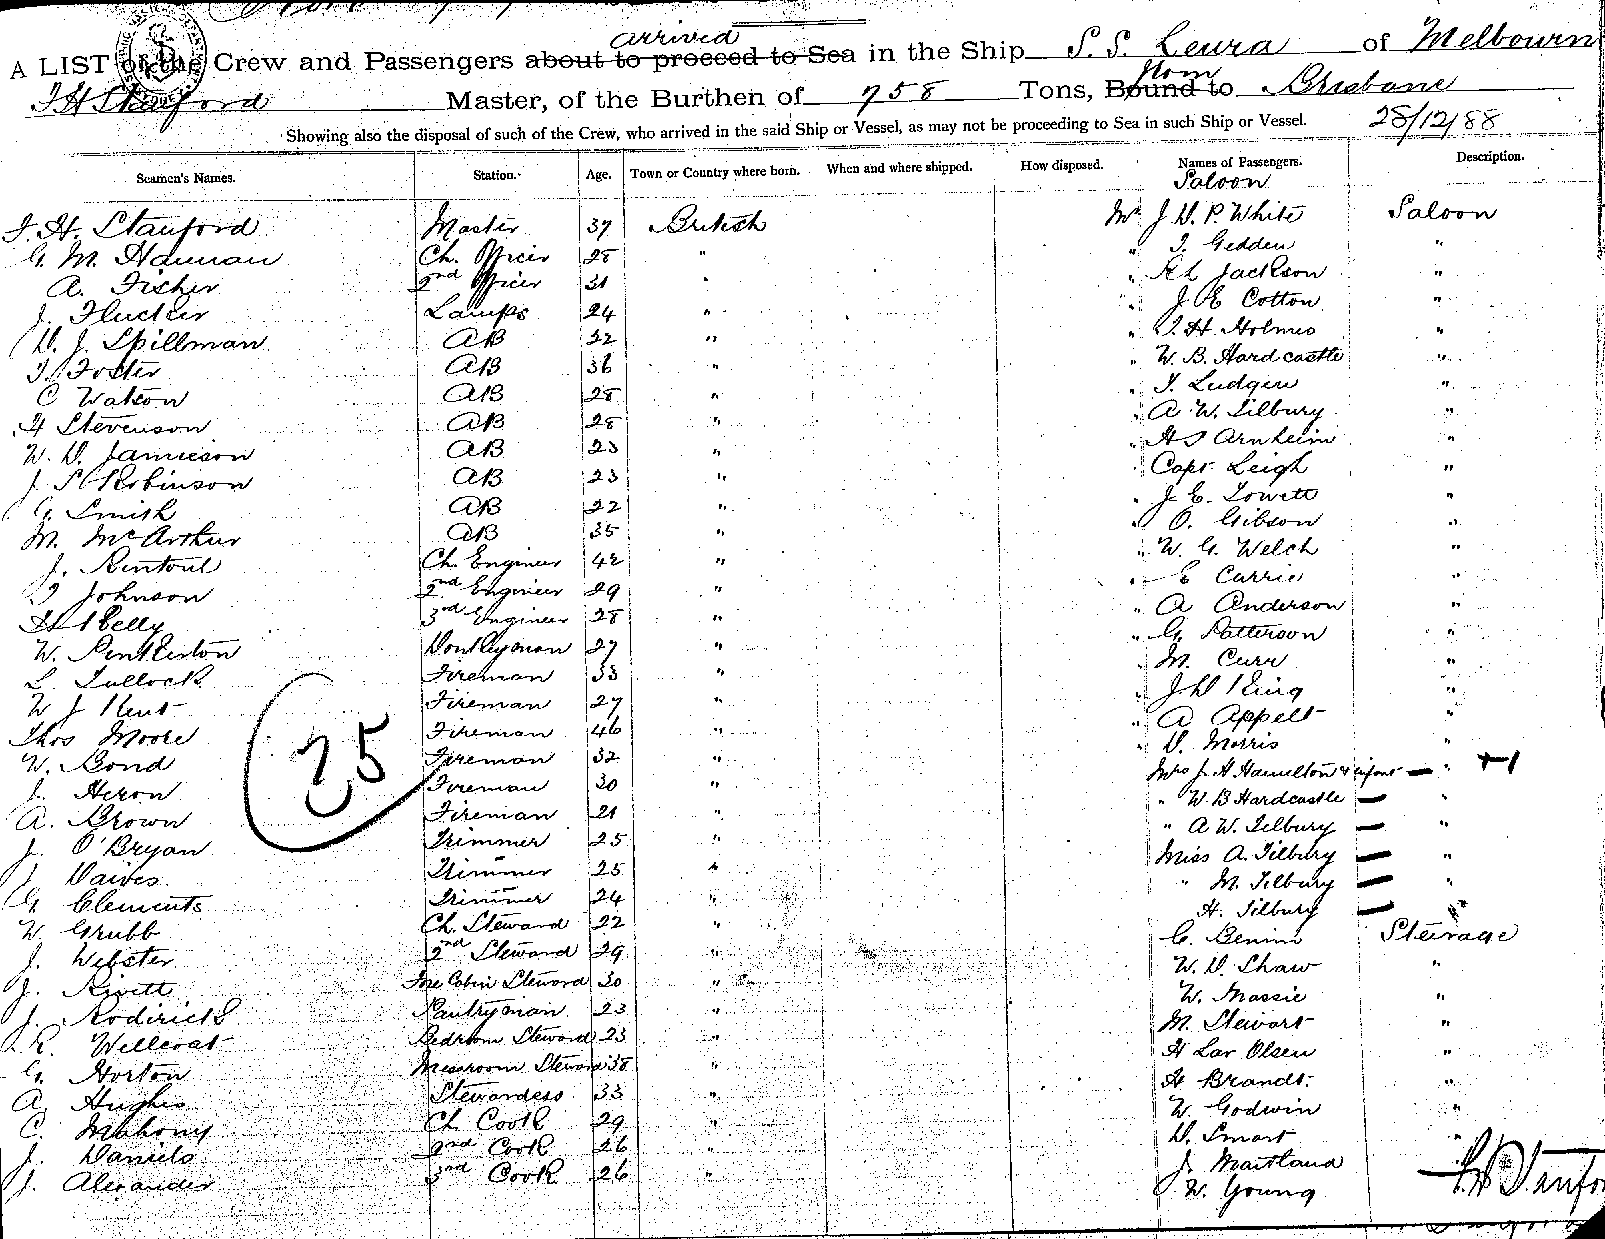 arrived
A LIST of the Crew and Passengers about to proceed to Sea in the Ship S. S. Leura of Melbourn
J H Stanford Master, of the Burthen of 758 Tons, Bound to from Brisbane
Showing also the disposal of such of the Crew, who arrived in the said Ship or Vessel, as may not be proceeding to Sea in such Ship or Vessel. 28/12/88
Seamen's Names. Station. Age. Town or Country where born. When and where shipped. How disposed. Names of Passengers. Description.
Saloon
J. H. Stanford Master 37 British Mr J D. P. White Saloon
G. M. Hannan Ch. Officer 28 " " J. Gedden "
A. Fisher 2nd Officer 31 " " Jackson "
J. Flucker Lamps 24 " " J. E Cotton "
D. J. Spillman AB 32 " " J. H. Holmes "
J. Foster AB 36 " " W. B. Hardcastle "
C Watson AB 28 " " J. Ludgen "
H Stevenson AB 28 " " A W. Tilbury "
W. D. Jamieson AB 23 " " H J Arnheim "
J. S Robinson AB 23 " Capt Leigh "
G. Smith AB 22 " " J. E. Lowett "
M. McArthur AB 35 " " O. Gibson "
J. Rintoul Ch. Engineer 42 " " W. G. Welch "
J Johnson 2nd Engineer 29 " " E Currie "
H Kelly 3rd Engineer 28 " " A Anderson "
W. Penkerton Donkeyman 27 " " G. Patterson "
L. Tullock Fireman 33 " " M. Curr "
W J Kent Fireman 27 " " J D King "
Thos Moore Fireman 46 " " A Appelt "
W. Bond Fireman 32 " " D. Morris "
J. Heron Fireman 30 " Mrs J. H Hamilton & infant — " +1
A. Brown Fireman 21 " " W. B Hardcastle — "
J. O'Bryan Trimmer 25 " " A W. Tilbury — "
J Daives Trimmer 25 " Miss A. Tilbury — "
G Clements Trimmer 24 " " M. Tilbury — "
W Grubb Ch. Steward 22 " H. Tilbury —
J. Webster 2nd Steward 29 " C. Benini Steerage
J. Rivett Fore Cabin Steward 30 " W. D. Shaw "
J. Roderick Pantryman 23 " W. Massie "
R. Wellcoat Bedroom Steward 23 " M. Stewart "
G. Horton Messroom Steward 38 " H Lar Olsen "
A Hughes Stewardess 33 " H Brandt. "
C. Mahony Ch Cook 29 " W. Godwin "
J. Daniels 2nd Cook 26 " D. Smart "
J. Alexander 3rd Cook 26 " J. Maitland
W. Young
75